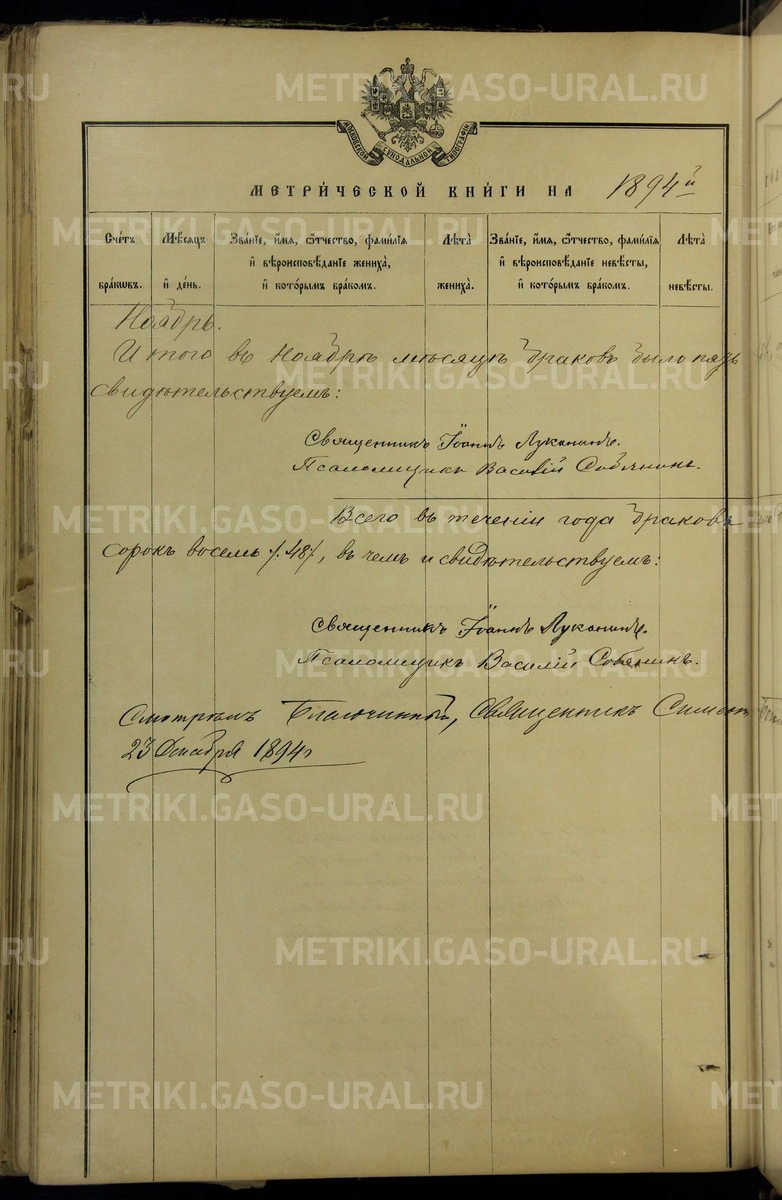 МОСКОВСКОЙ СѴНОДАЛЬНОЙ ТИПОГРАФІИ
МЕТРИ́ЧЕСКОЙ КНИ́ГИ НА 1894й
Сче́тъ бра́кωвъ.
Мѣ́сяцъ и҆ де́нь.
Зва́нїе, и҆́мя, ѻ҆́тчество, фами́лїя и҆ вѣроисповѣ́данїе жениха̀, и҆ кото́рымъ бра́комъ.
Лѣта̀ жениха̀.
Зва́нїе, и҆́мя, ѻ҆́тчество, фами́лїя и҆ вѣроисповѣ́данїе невѣ́сты, и҆ кото́рымъ бра́комъ.
Лѣта̀ невѣ́сты.
Ноябрь.
Итого въ Ноябрѣ мѣсяцѣ браковъ было пять
свидѣтельствуемъ:
Священникъ Іоаннъ Луканинъ.
Псаломщикъ Василій Собянинъ.
Всего въ теченіи года браковъ
сорокъ восемь /.48/, въ чемъ и свидѣтельствуемъ:
Священникъ Іоаннъ Луканинъ.
Псаломщикъ Василій Собянинъ.
Смотрѣлъ Благочинный, Священникъ
23 Декабря 1894г
METRIKI.GASO-URAL.RU